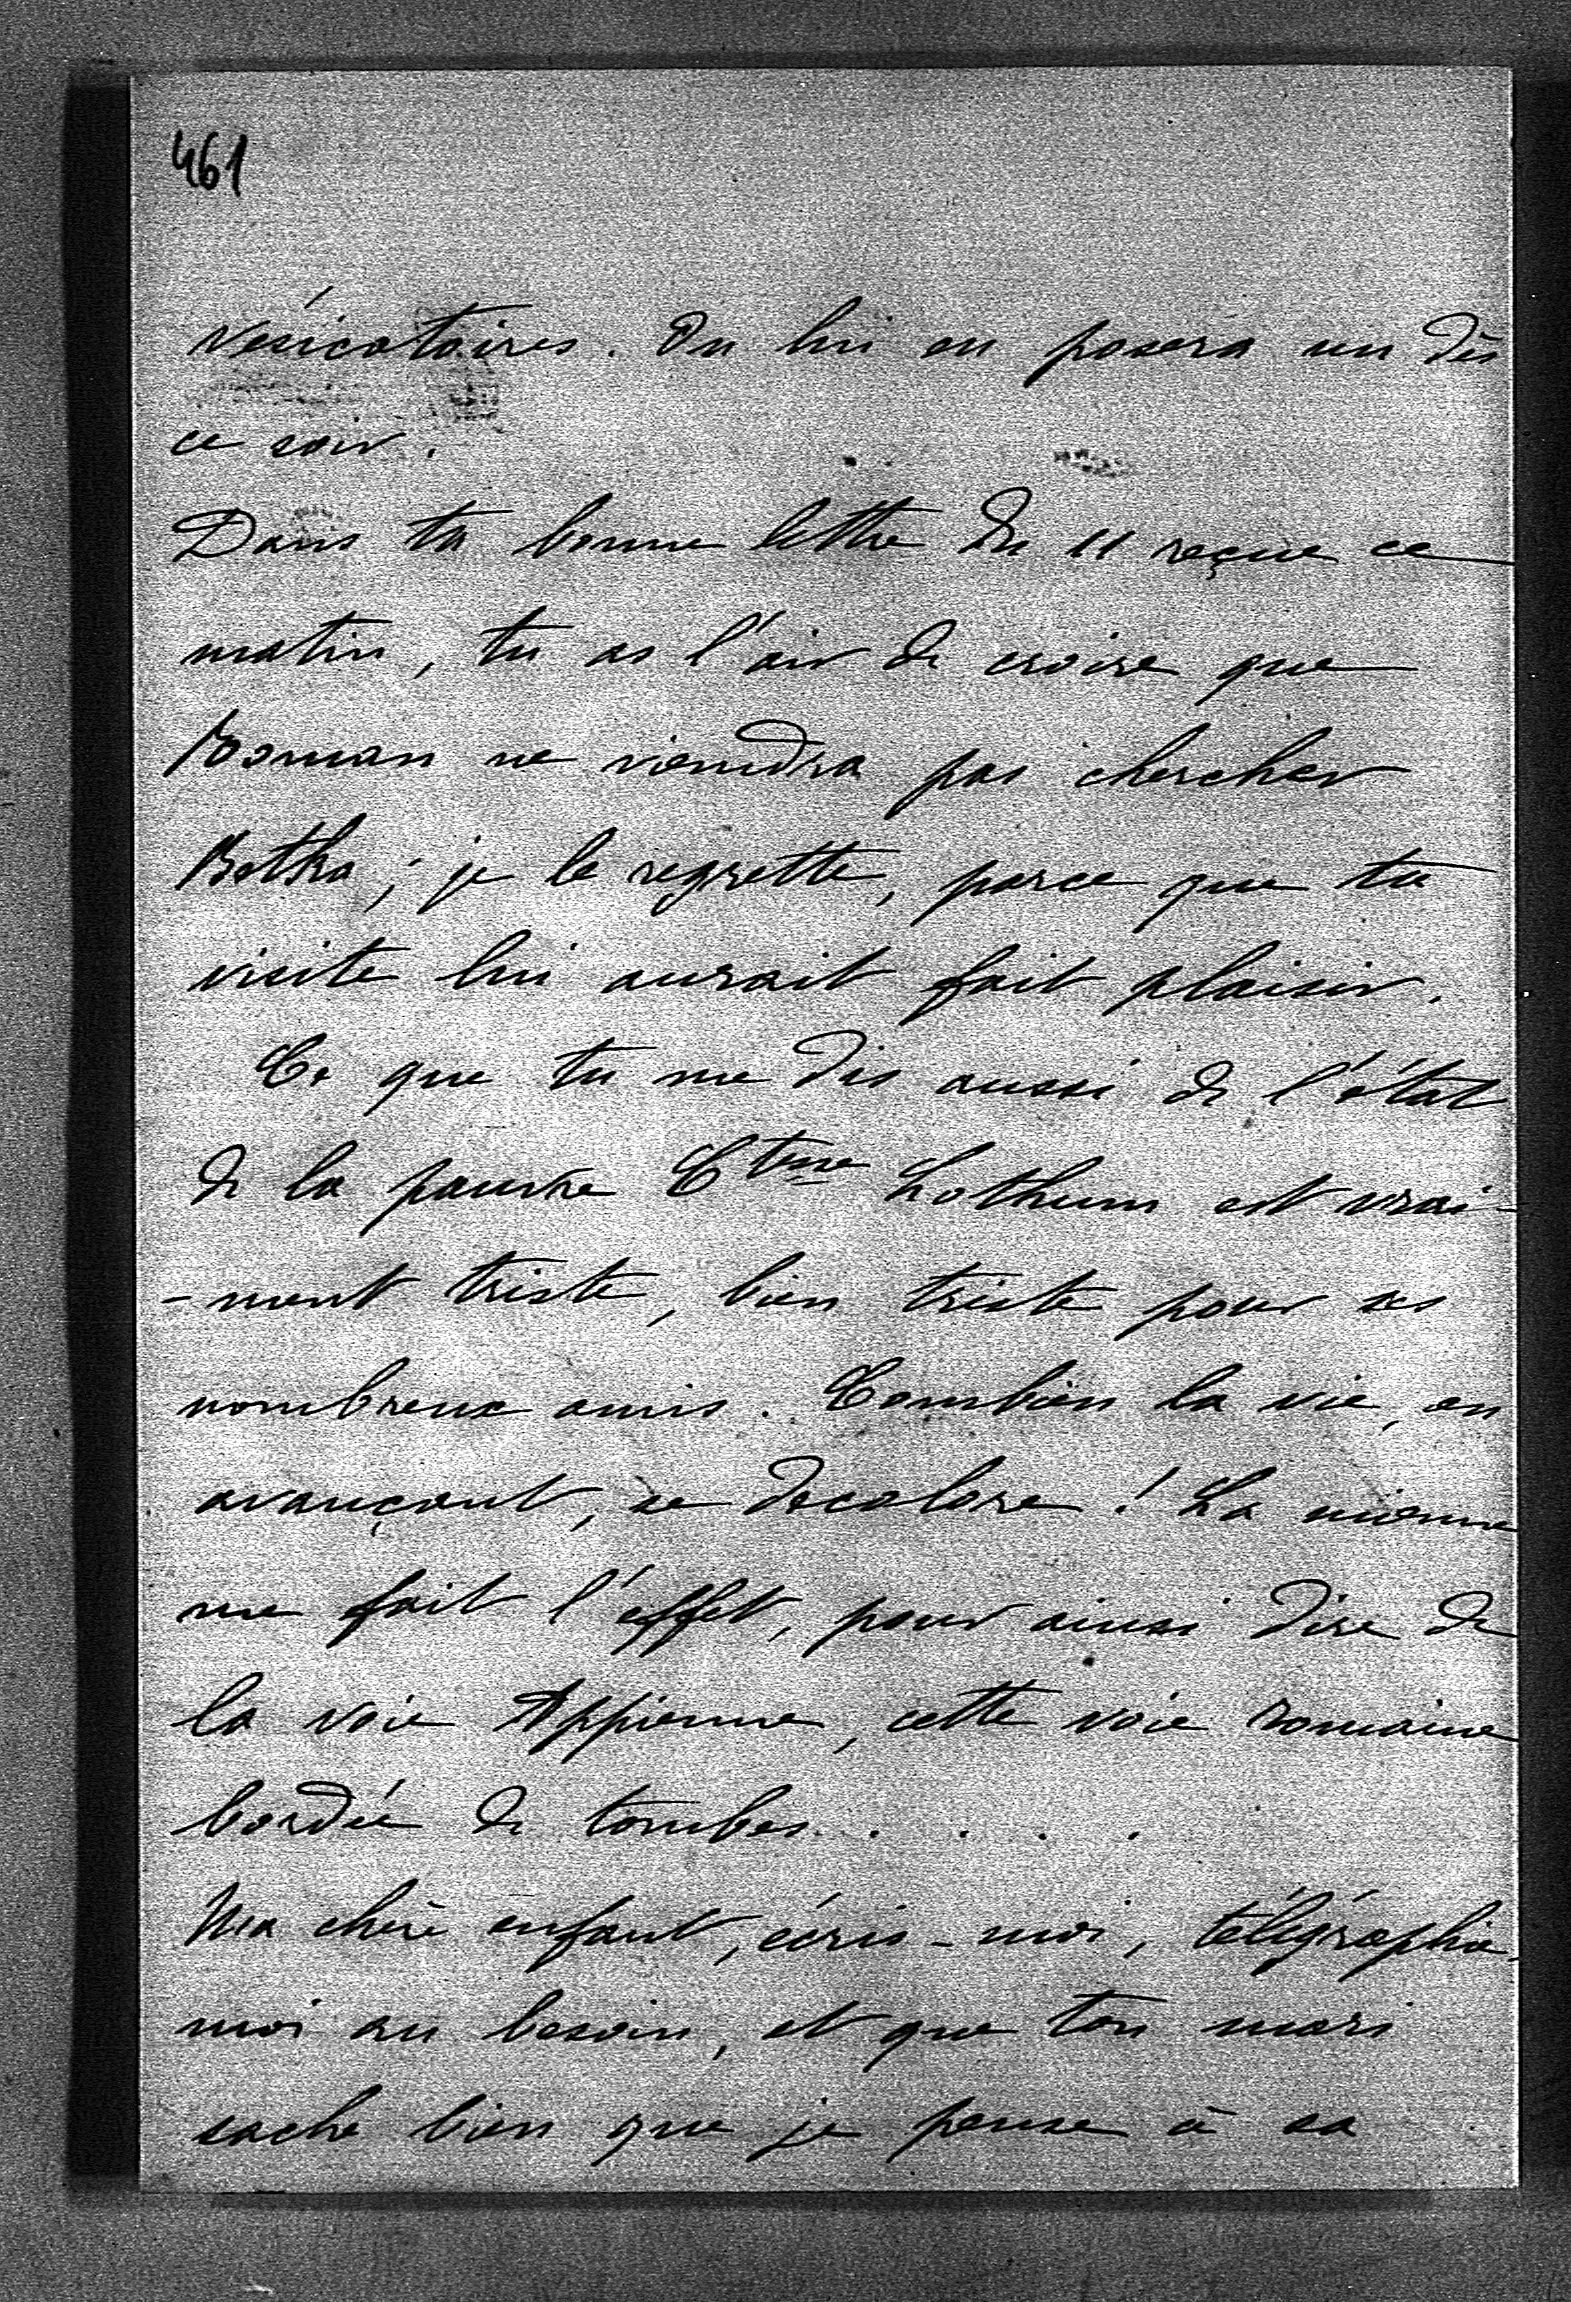 461
vésicatoires. On lui en posera un dès
ce soir.
Dans ta bonne lettre du 11 reçue ce
matin, tu as l'air de croire que
Roman ne viendra pas chercher
Betka ; je le regrette, parce que ta
visite lui aurait fait plaisir.
Ce que tu me dis aussi de l'état
de la pauvre Ctesse Lothum est vrai-
-ment triste, bien triste pour ses
nombreux amis. Combien la vie, en
avançant, se decolore ! La mienne
me fait l'éffet, pour ainsi dire de
la voie Appienne, cette voie romaine
bordée de tombes . . . .
Ma chère enfant, écris-moi, télégraphie-
moi au besoin, et que ton mari
sache bien que je pense à sa